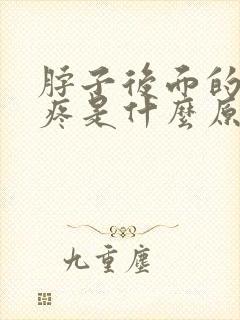 脖子後面的
疼是什麼原
九重塵